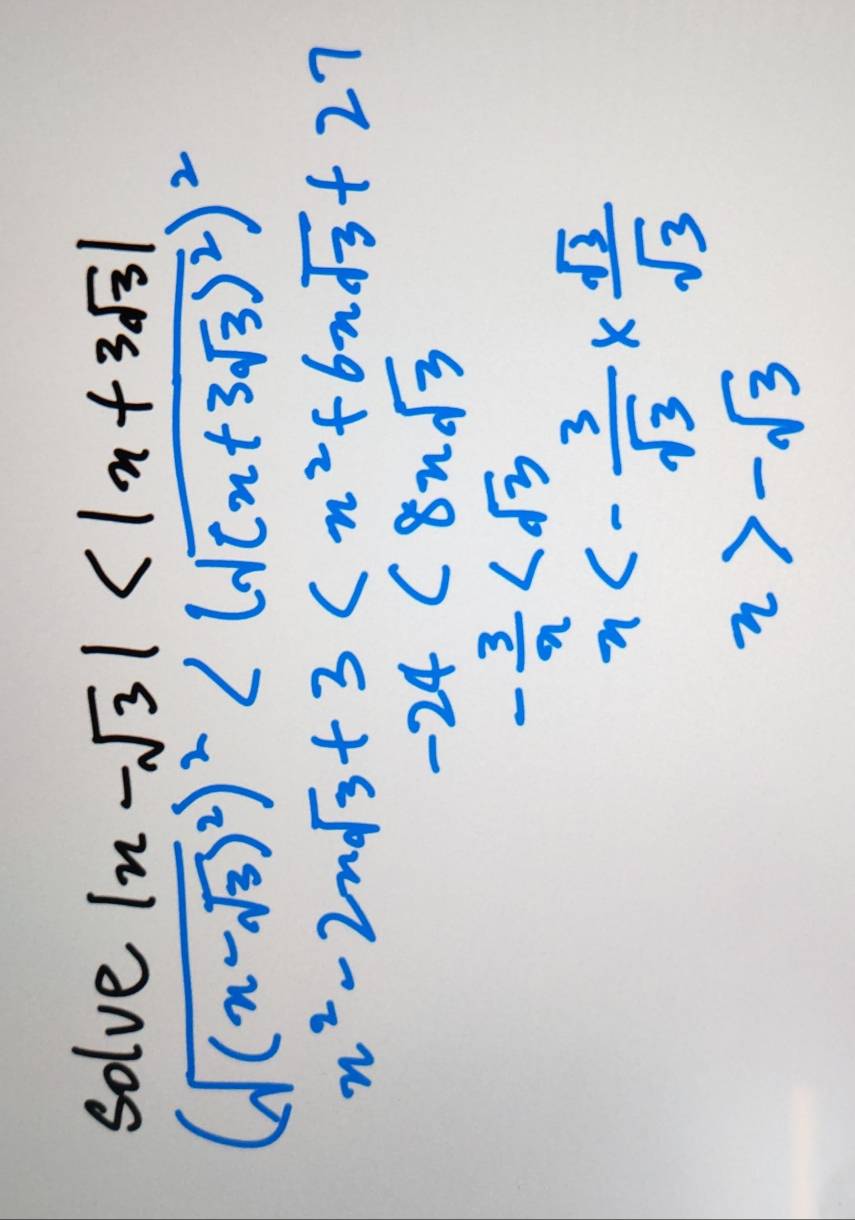 Solve |x - √3| < |x + 3√3|
(√(x - √3)²)² < (√(x + 3√3)²)²
x² - 2x√3 + 3 < x² + 6x√3 + 27
-24 < 8x√3
-3/x < √3
x < -3/√3 × √3/√3
x > -√3